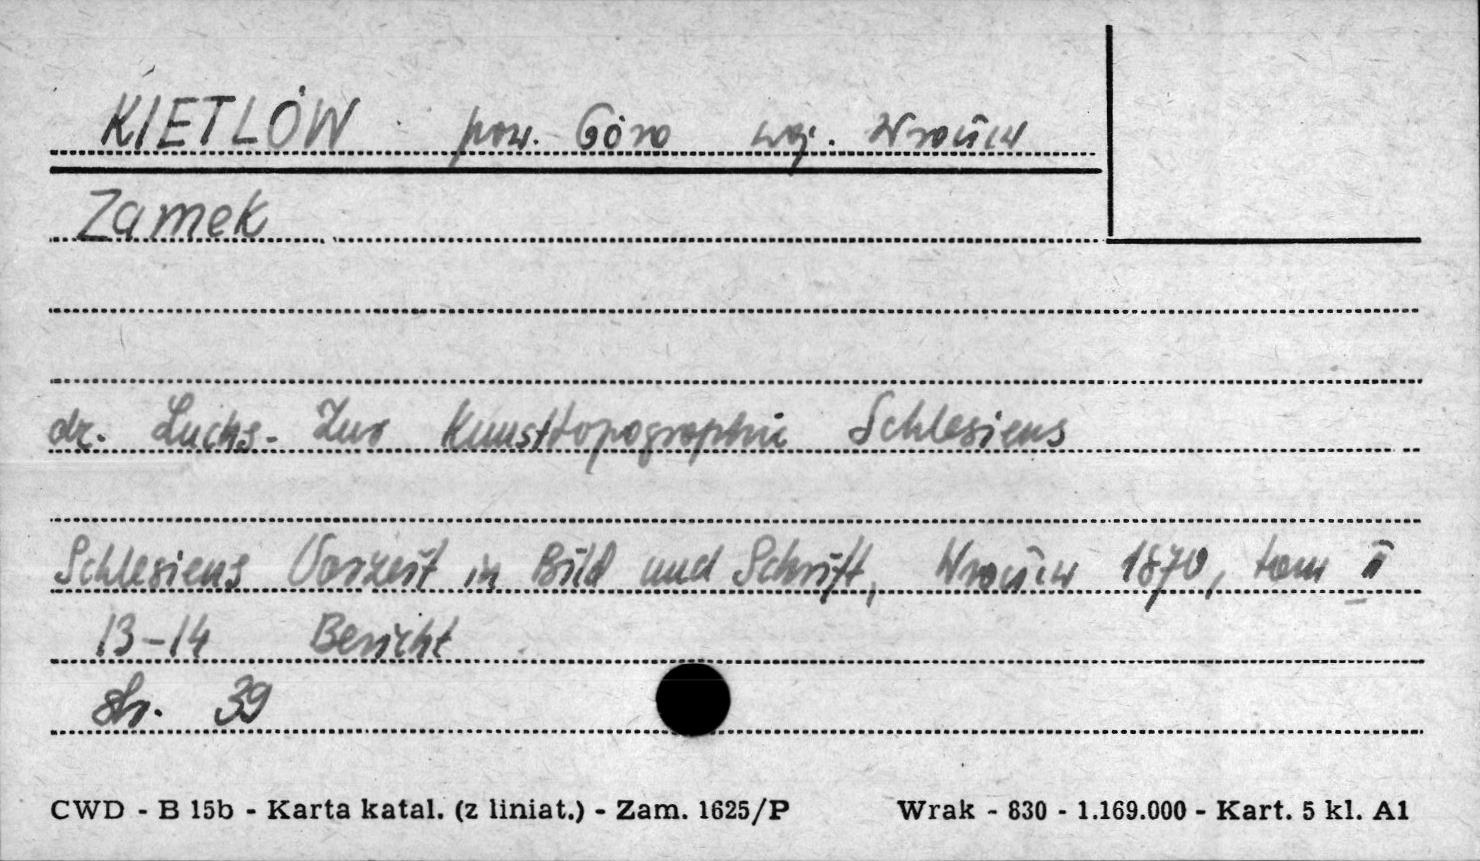 KIETLÓW pow. Góra woj. Wrocław
Zamek
dr. Luchs - Zur Kunsttopographie Schlesiens
Schlesiens Vorzeit in Bild und Schrift, Wrocław 1870, tom II
13-14 Bericht
str. 39
CWD - B 15b - Karta katal. (z liniat.) - Zam. 1625/P Wrak - 830 - 1.169.000 - Kart. 5 kl. A1